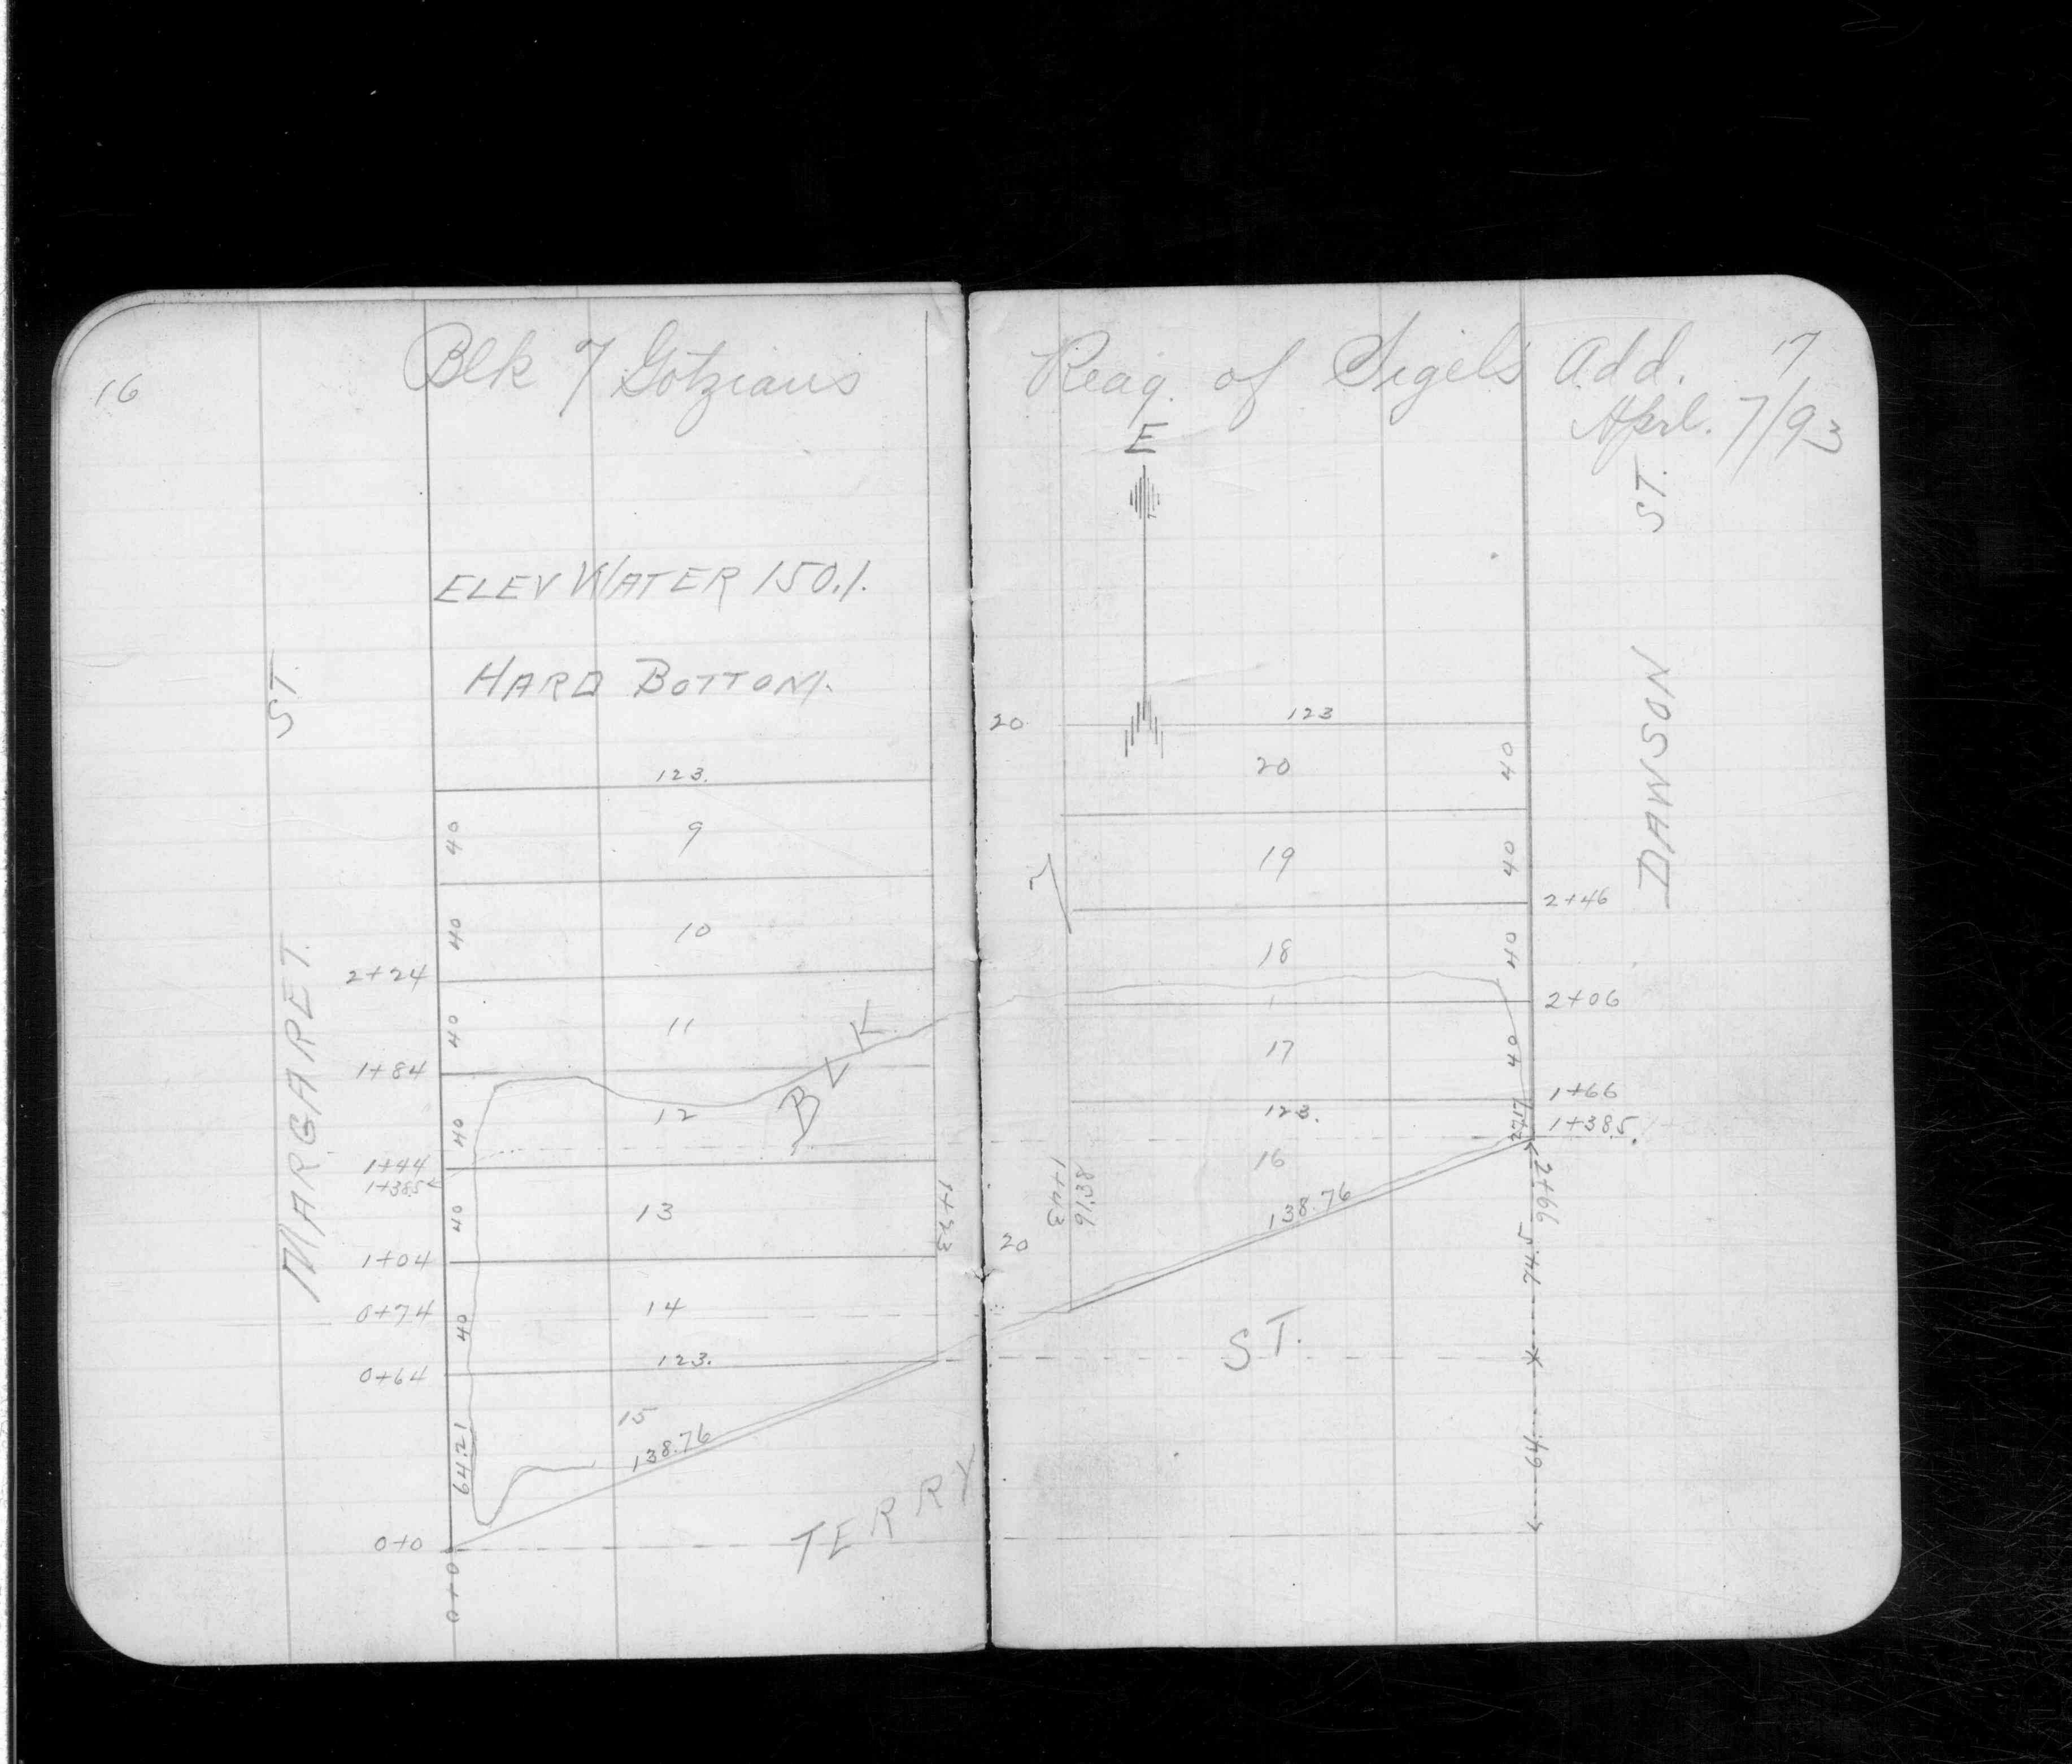 16
Blk 7 Gotzians
ELEV WATER 150.1.
HARD BOTTOM.
MARGARET ST.
123.
9
40
10
40
2+24
11
40
1+84
BLK
12
40
1+44
1+38.5
13
40
1+23
1+04
0+74
14
40
123.
0+64
15
138.76
64.21
TERRY
0+0
0+0
Reag. of Sigels Add.
17
Aprl. 7/93
E
DAWSON ST.
20
123
20
40
19
40
7
2+46
18
40
2+06
17
40
1+66
123.
27.17
1+38.5.
16
1+43
91.38
138.76
2+66
20
74.5
ST.
64.